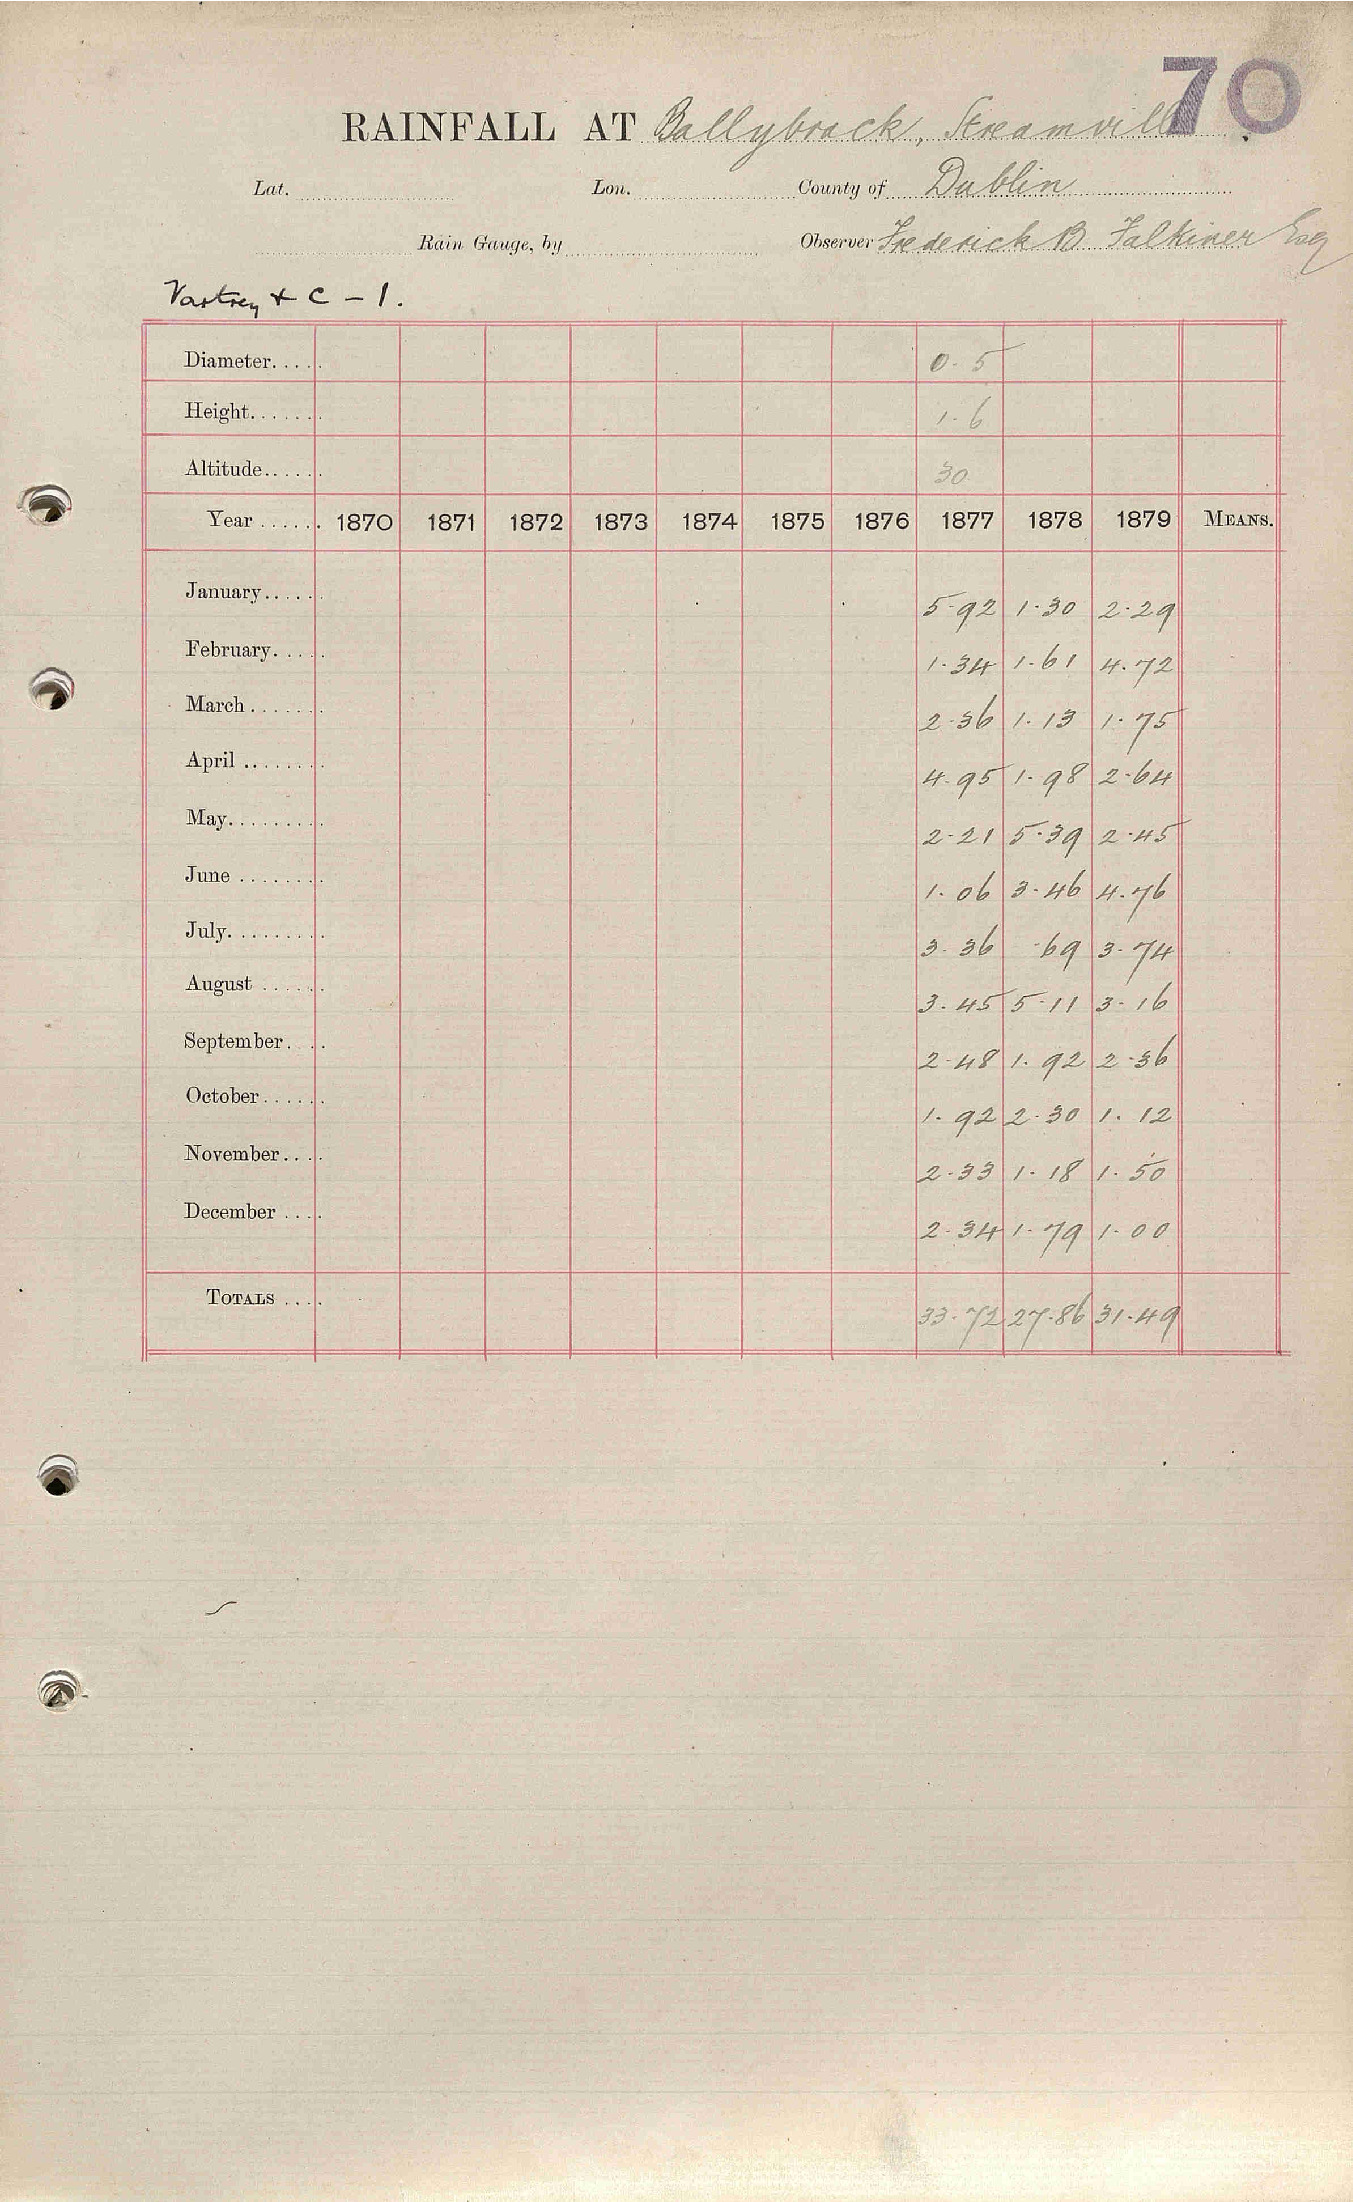 70
RAINFALL AT Ballybrack, Streamville
Lat. Lon. County of Dublin
Rain Gauge, by Observer Frederick B Falkiner Esq
Vartrey & C - 1.
Diameter..... 0.5
Height....... 1.6
Altitude...... 30
Year ...... 1870 1871 1872 1873 1874 1875 1876 1877 1878 1879 MEANS.
January...... 5.92 1.30 2.29
February..... 1.34 1.61 4.72
March ....... 2.36 1.13 1.75
April ........ 4.95 1.98 2.64
May......... 2.21 5.39 2.45
June ........ 1.06 3.46 4.76
July......... 3.36 .69 3.74
August ...... 3.45 5.11 3.16
September... 2.48 1.92 2.36
October...... 1.92 2.30 1.12
November.... 2.33 1.18 1.50
December .... 2.34 1.79 1.00
TOTALS .... 33.72 27.86 31.49